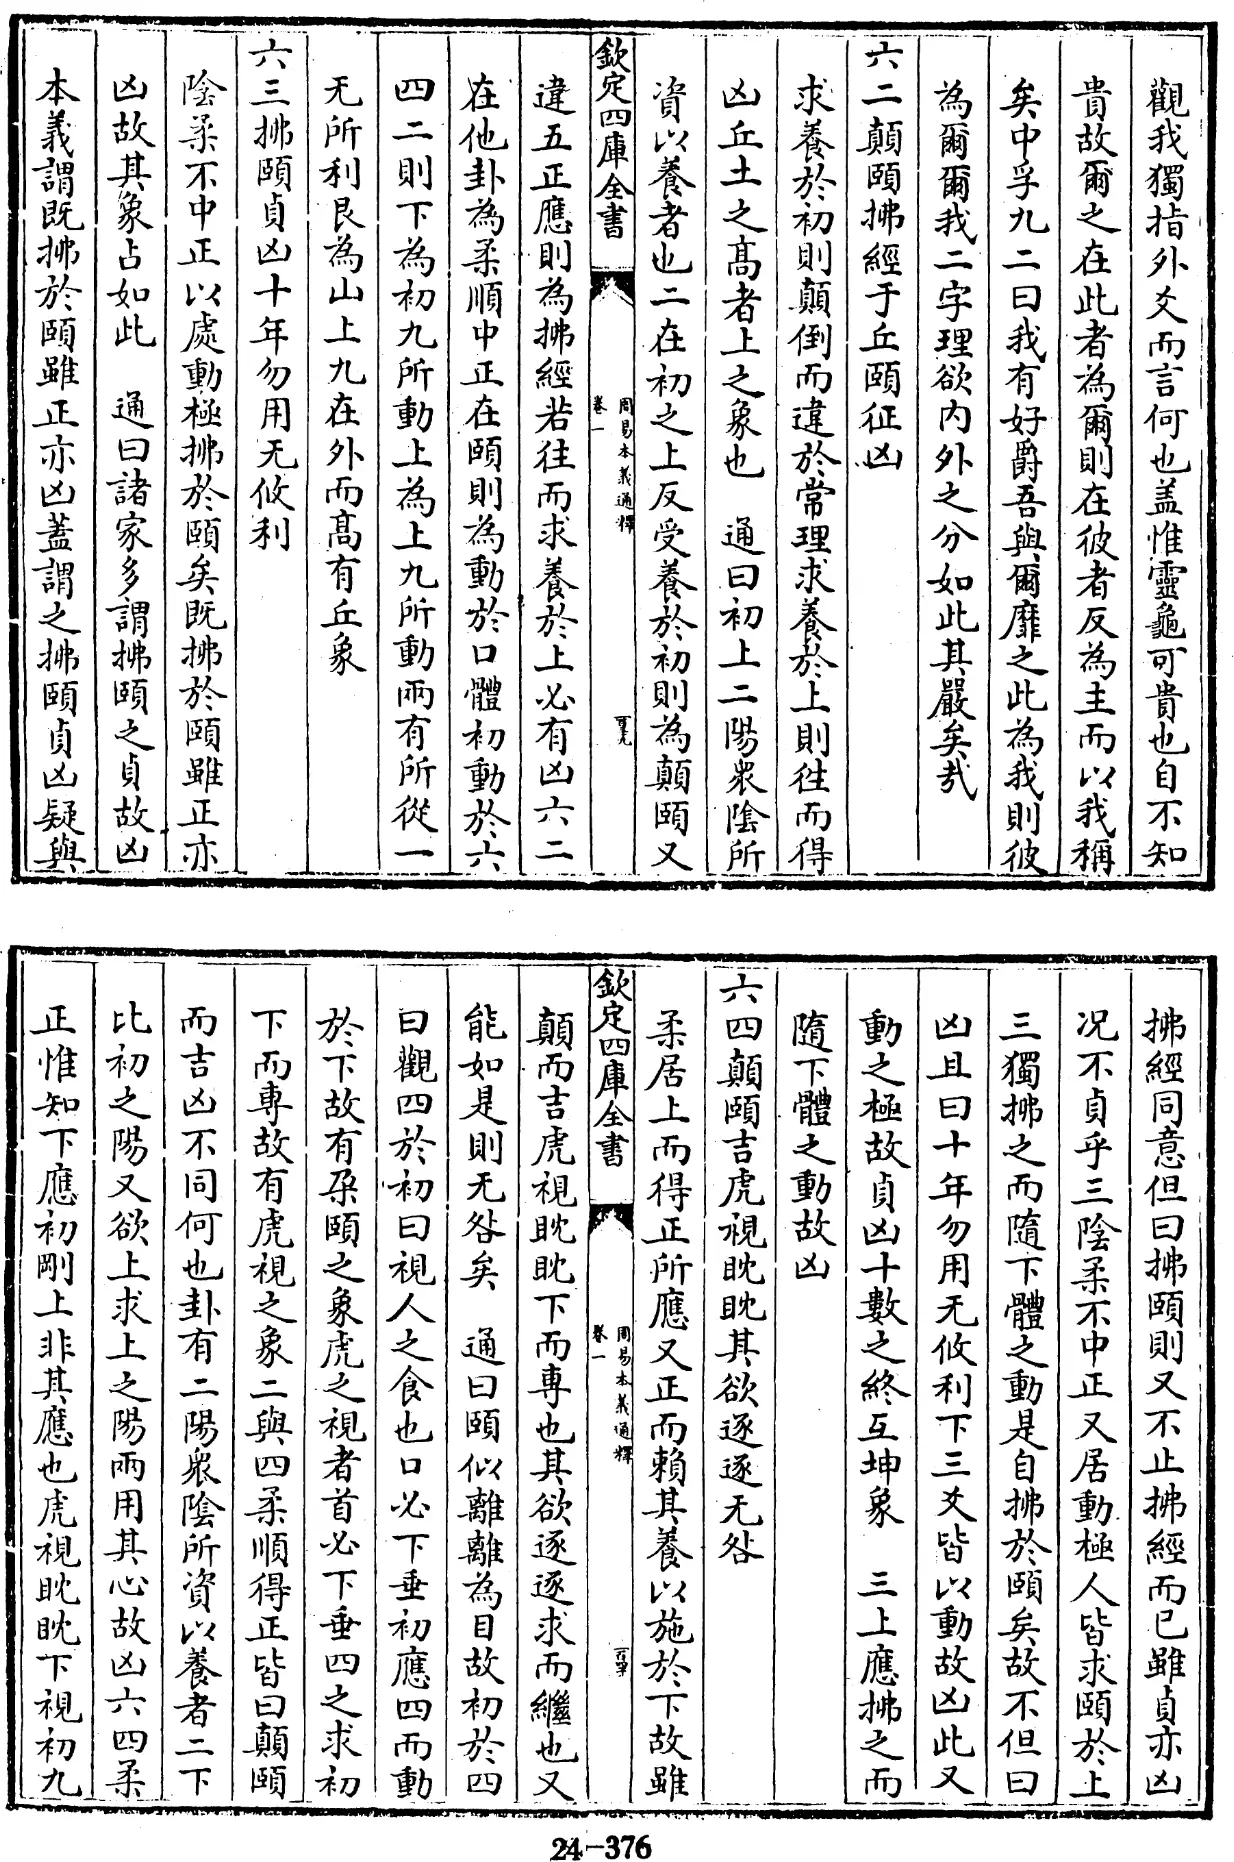 觀我獨指外爻而言何也盖惟靈龜可貴也自不知
貴故爾之在此者為爾則在彼者反為主而以我稱
矣中孚九二曰我有好爵吾與爾靡之此為我則彼
為爾爾我二字理欲内外之分如此其嚴矣㢤
六二顛頤拂經于丘頤征凶
求養於初則顛倒而違於常理求養於上則徃而得
凶丘土之髙者上之象也　通曰初上二陽衆陰所
資以養者也二在初之上反受養於初則為顛頤又
欽定四庫全書
周易本義通釋
卷一
違五正應則為拂經若往而求養於上必有凶六二
在他卦為柔順中正在頤則為動於口體初動於六
四二則下為初九所動上為上九所動兩有所從一
无所利艮為山上九在外而髙有丘象
六三拂頤貞凶十年勿用无攸利
陰柔不中正以處動極拂於頤矣既拂於頤雖正亦
凶故其象占如此　通曰諸家多謂拂頤之貞故凶
本義謂既拂於頤雖正亦凶蓋謂之拂頤貞凶疑與
拂經同意但曰拂頤則又不止拂經而已雖貞亦凶
况不貞乎三陰柔不中正又居動極人皆求頤於上
三獨拂之而隨下體之動是自拂於頤矣故不但曰
凶且曰十年勿用无攸利下三爻皆以動故凶此又
動之極故貞凶十數之終互坤象　三上應拂之而
隨下體之動故凶
六四顛頤吉虎視眈眈其欲逐逐无咎
柔居上而得正所應又正而賴其養以施於下故雖
欽定四庫全書
周易本義通釋
卷一
顛而吉虎視眈眈下而專也其欲逐逐求而繼也又
能如是則无咎矣　通曰頤似離離為目故初於四
曰觀四於初曰視人之食也口必下垂初應四而動
於下故有朶頤之象虎之視者首必下垂四之求初
下而專故有虎視之象二與四柔順得正皆曰顛頤
而吉凶不同何也卦有二陽衆陰所資以養者二下
比初之陽又欲上求上之陽兩用其心故凶六四柔
正惟知下應初剛上非其應也虎視眈眈下視初九
24-376